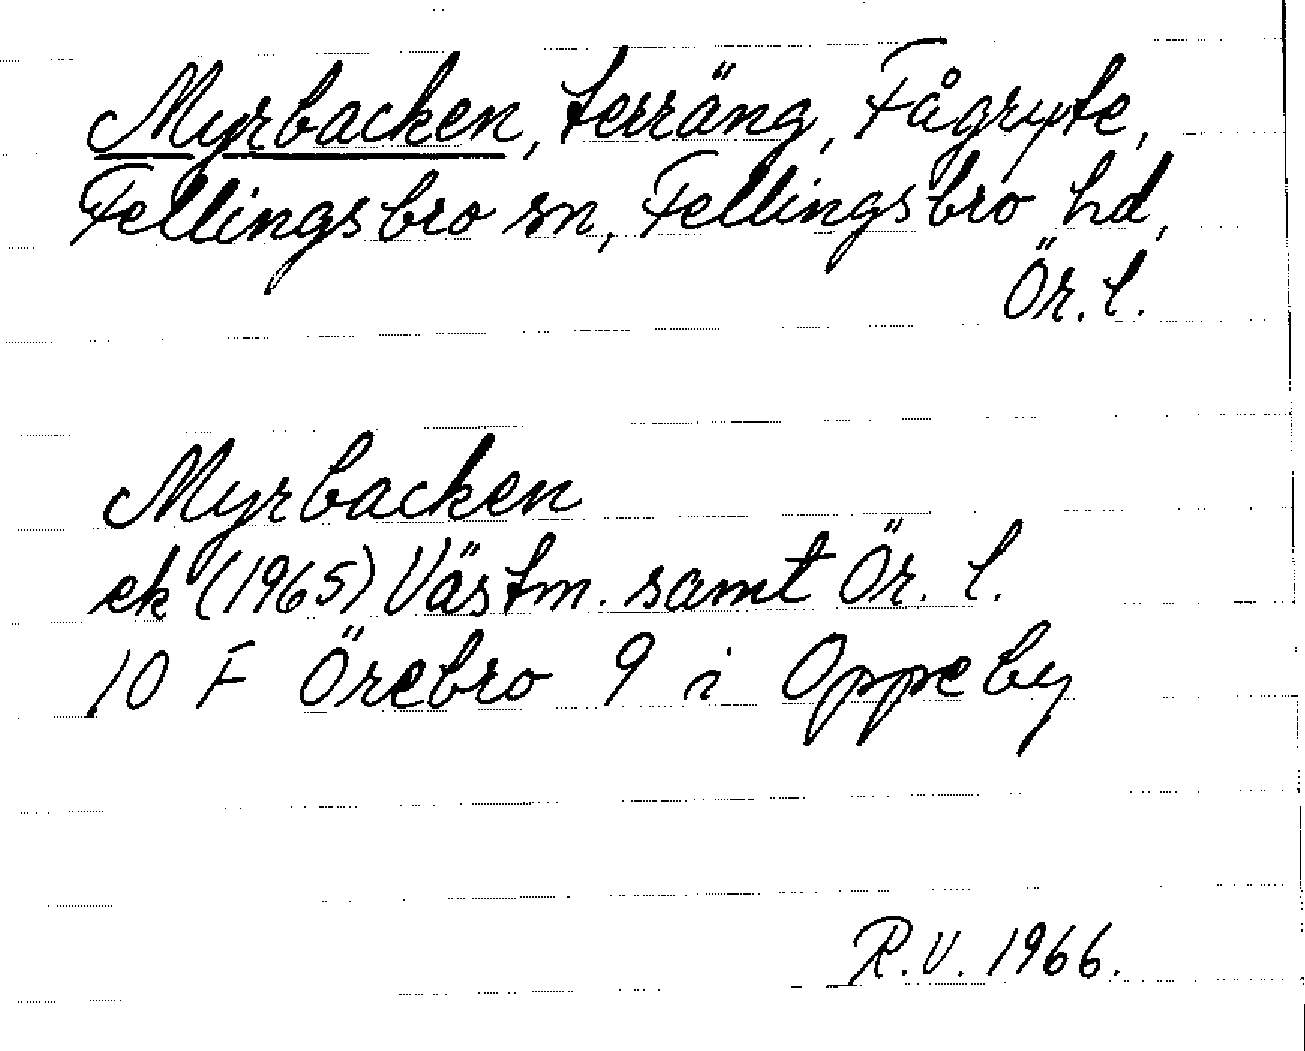 Myrbacken, terräng, Fågryte,
Fellingsbro sn, Fellingsbro hd,
Ör. l.
Myrbacken
ek (1965) Västm. samt Ör. l.
10 F Örebro 9 i Oppeby
R.V. 1966.